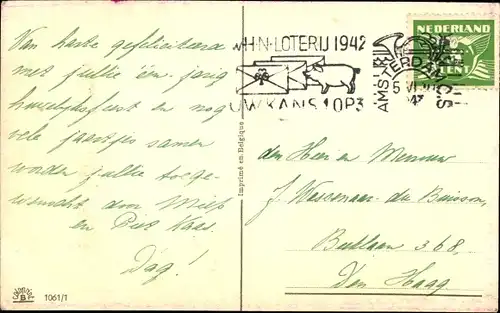 Van harte gefeliciteerd
met jullie één jarig
huwelijksfeest en nog
vele jaartjes samen
worden jullie toege-
wenscht door Miep
en Piet Kaas.
Dag!
1061/1
Imprimé en Belgique
W.H.N-LOTERIJ 1942
UW KANS 1 OP 3
AMSTERDAM C.S
NEDERLAND
CENT
den Heer en Mevrouw
J. Wassenaar-du Buisson,
Beeklaan 368,-
Den Haag